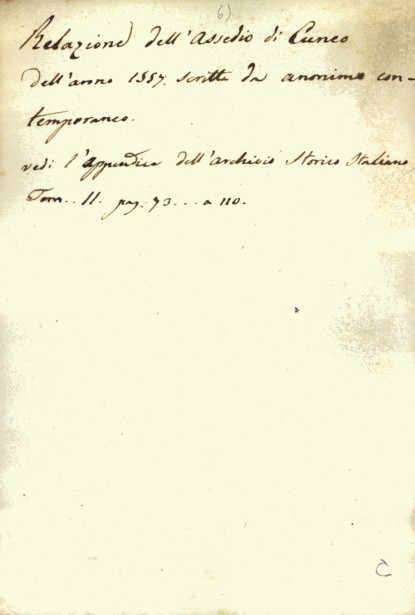 6)
Relazione dell'Assedio di Cuneo
dell'anno 1557. scritta da anonimo con-
temporaneo.
vedi l'Appendice dell'archivio Storico Italiano
Tom. II. pag. 73... a 110.
C